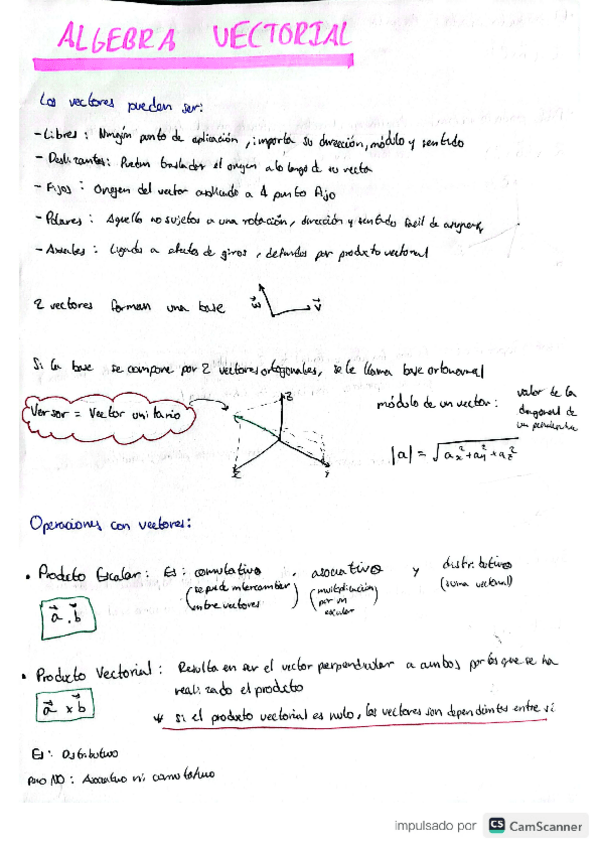 ALGEBRA VECTORIAL
Los vectores pueden ser:
- Libres: Ningún punto de aplicación, importa su dirección, módulo y sentido
- Deslizantes: Pueden trasladar el origen a lo largo de su recta
- Fijos: Origen del vector aplicado a 1 punto fijo
- Polares: Aquello no sujetos a una rotación, dirección y sentido fácil de
- Axiales: Ligados a efectos de giros, definidos por producto vectorial
2 vectores forman una base w v
Si la base se compone por 2 vectores ortogonales, se le llama base ortonormal
Versor = Vector unitario
z
y
módulo de un vector: valor de la
diagonal de
un
|a| = √ax²+ay²+az²
Operaciones con vectores:
• Producto Escalar: Es: conmutativo, asociativo y distributivo
(se puede intercambiar
entre vectores)
(multiplicación
por un
escalar)
(suma vectorial)
a . b
• Producto Vectorial: Resulta en ser el vector perpendicular a ambos por los que se ha
realizado el producto
a x b
* si el producto vectorial es nulo, los vectores son dependientes entre sí
Es: Distributivo
Pero NO: Asociativo ni conmutativo
impulsado por CS CamScanner